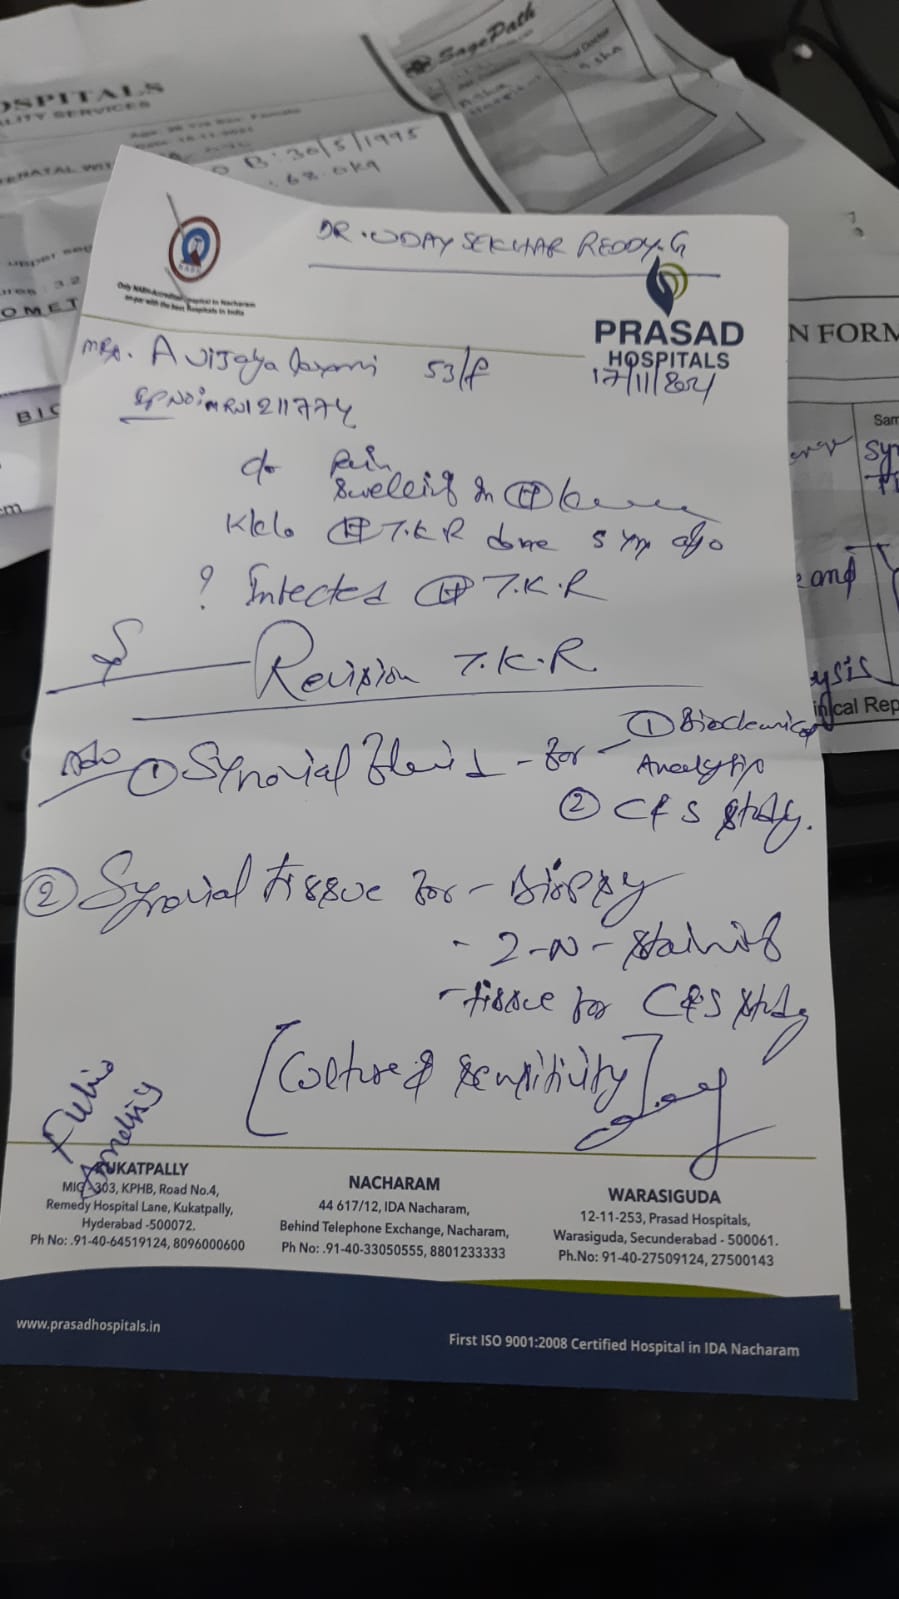 SagePath
OSPITALS
LITY SERVICES
B: 30/5/1995
68.0kg
DR. UDAY SEKHAR REDDY.G
Only NABH Accredited Hospital in Nacharam
on par with the best Hospitals in India
PRASAD
HOSPITALS
N FORM
Mrs. A Vijaya laxmi 53/f
17/11/2021
IP NO: MRN1211774
c/o Pain
Swelling in (R) knee
K/c/o (R) T.K.R done 5 yrs ago
? Infected (R) T.K.R
Revision T.K.R
and
ysis
inical Rep
Adv ① Synovial fluid - for - ① Biochemical
Analysis
② C & S study.
② Synovial tissue for - Biopsy
- Z-N- staining
- tissue for C&S study
[Culture & sensitivity]
Fluid
Analysis
KUKATPALLY
MIG-303, KPHB, Road No.4,
Remedy Hospital Lane, Kukatpally,
Hyderabad -500072.
Ph No: .91-40-64519124, 8096000600
NACHARAM
44 617/12, IDA Nacharam,
Behind Telephone Exchange, Nacharam,
Ph No: .91-40-33050555, 8801233333
WARASIGUDA
12-11-253, Prasad Hospitals,
Warasiguda, Secunderabad - 500061.
Ph.No: 91-40-27509124, 27500143
www.prasadhospitals.in
First ISO 9001:2008 Certified Hospital in IDA Nacharam